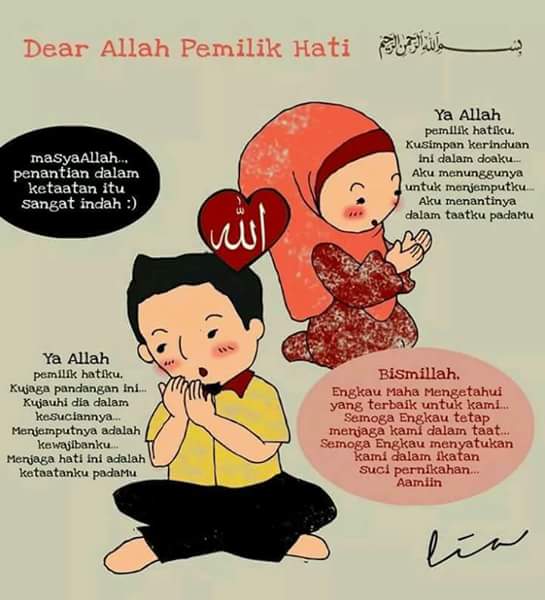 Dear Allah Pemilik Hati
بسم الله الرحمن الرحيم
masyaAllah..,
penantian dalam
ketaatan itu
sangat indah :)
Ya Allah
pemilik hatiku,
Kusimpan kerinduan
ini dalam doaku...
Aku menunggunya
untuk menjemputku...
Aku menantinya
dalam taatku padaMu
الله
Ya Allah
pemilik hatiku,
Kujaga pandangan ini...
Kujauhi dia dalam
kesuciannya...
Menjemputnya adalah
kewajibanku...
Menjaga hati ini adalah
ketaatanku padaMu
Bismillah,
Engkau Maha Mengetahui
yang terbaik untuk kami...
Semoga Engkau tetap
menjaga kami dalam taat...
Semoga Engkau menyatukan
kami dalam ikatan
suci pernikahan...
Aamiin